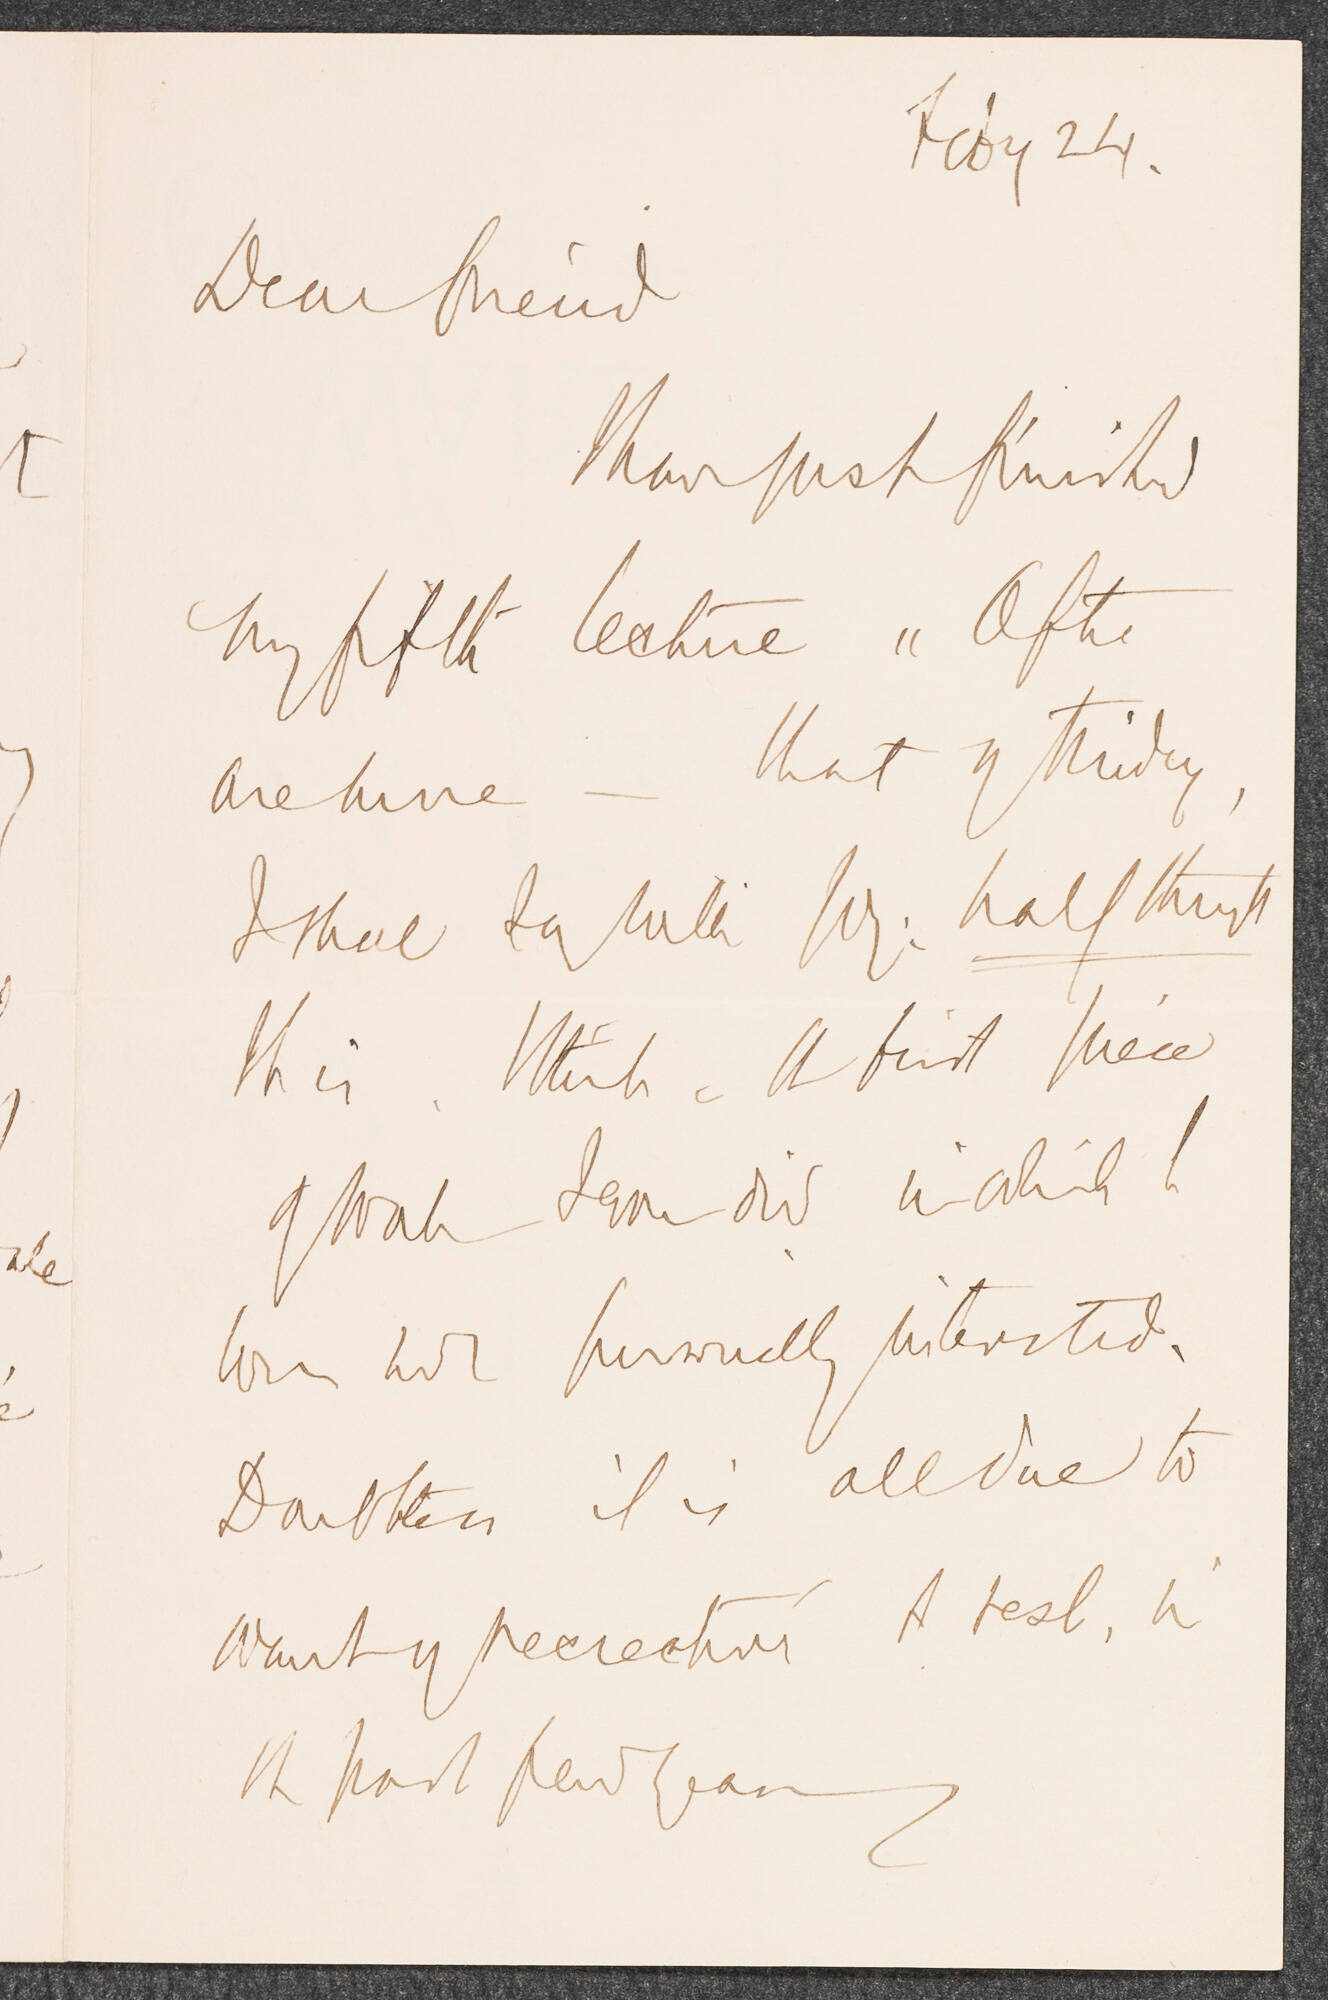 Feby 24.
Dear friend
I have just finished
my fifth lecture. After
one more — that of Friday,
I shall say with joy: half through
This is, I think, the first piece
of work I ever did in which I
was not personally interested.
Doubtless it is all due to
want of recreation & rest, in
the past few years